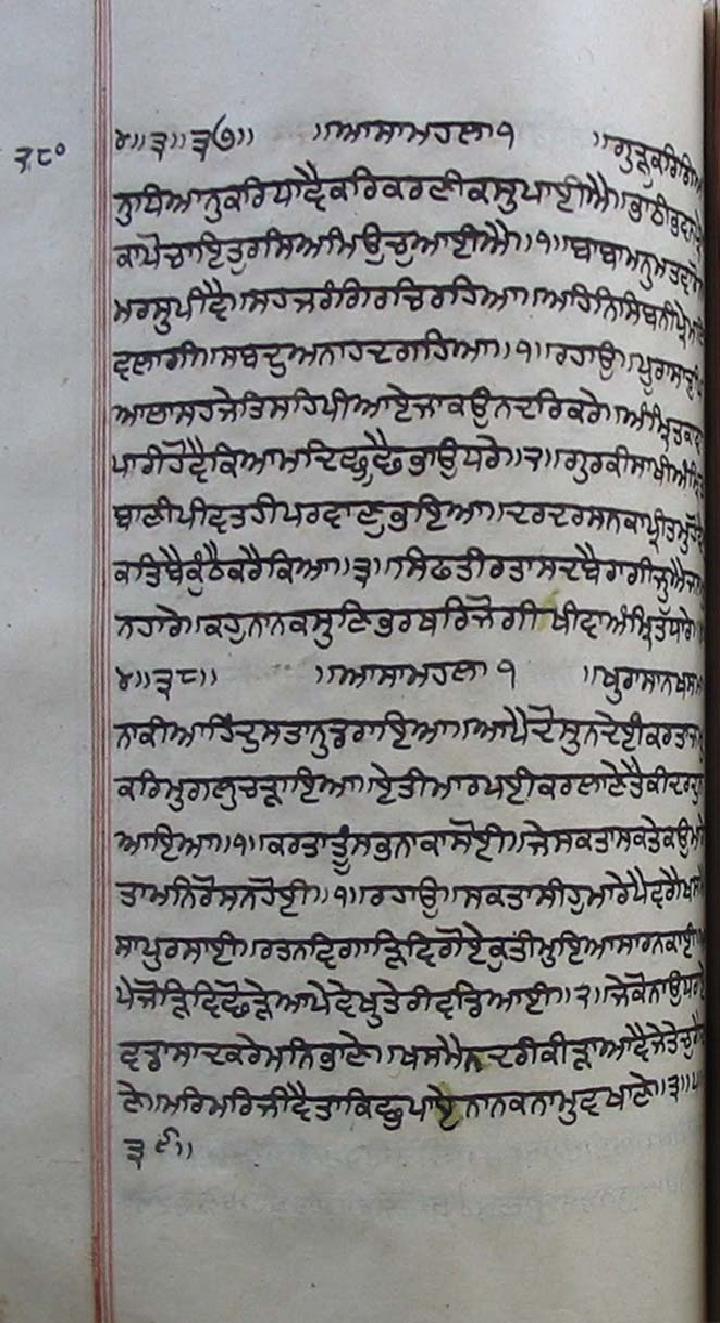 ੨੮੦
੪॥੩॥੩੭॥ ॥ਆਸਾਮਹਲਾ੧ ॥ਗੁੜੁਕਰਿਗਿਆ
ਨੁਧਿਆਨੁਕਰਿਧਾਵੈਕਰਿਕਰਣੀਕਸੁਪਾਈਐ॥ਭਾਠੀਭਵਨੁਪ੍ਰੇਮ
ਕਾਪੋਚਾਇਤੁਰਸਿਅਮਿਉਚੁਆਈਐ॥੧॥ਬਾਬਾਮਨੁਮਤਵਾਰੋ
ਮਰਸੁਪੀਵੈ॥ਸਹਜਰੰਗਿਰਚਿਰਹਿਆ॥ਅਹਿਨਿਸਿਬਨੀਪ੍ਰੇਮਲਿ
ਵਲਾਗੀ॥ਸਬਦੁਅਨਾਹਦਗਹਿਆ॥੧॥ਰਹਾਉ॥ਪੂਰਾਸਾਚੁਪਿ
ਆਲਾਸਹਜੇਤਿਸਹਿਪੀਆਏਜਾਕਉਨਦਰਿਕਰੇ॥ਅੰਮ੍ਰਿਤਕਾਵਾ
ਪਾਰੀਹੋਵੈਕਿਆਮਦਿਛੂਛੈਭਾਉਧਰੇ॥੨॥ਗੁਰਕੀਸਾਖੀਅੰਮ੍ਰਿਤ
ਬਾਣੀਪੀਵਤਹੀਪਰਵਾਣੁਭਇਆ॥ਦਰਦਰਸਨਕਾਪ੍ਰੀਤਮੁਹੋਵੈ
ਕਤਿਬੈਕੁੰਠੈਕਰੈਕਿਆ॥੩॥ਸਿਫਤੀਰਤਾਸਦਬੈਰਾਗੀਜੂਐਜਨਮੁ
ਨਹਾਰੇ॥ਕਹੁਨਾਨਕਸੁਣਿਭਰਥਰਿਜੋਗੀਖੀਵਾਅੰਮ੍ਰਿਤਧਾਰੇ॥
੪॥੩੮॥ ॥ਆਸਾਮਹਲਾ੧ ॥ਖੁਰਾਸਾਨਖਸਮਾ
ਨਾਕੀਆਹਿੰਦੁਸਤਾਨੁਡਰਾਇਆ॥ਆਪੈਦੋਸੁਨਦੇਈਕਰਤਾਜਮੁ
ਕਰਿਮੁਗਲੁਚੜਾਇਆ॥ਏਤੀਮਾਰਪਈਕਰਲਾਣੇਤੈਕੀਦਰਦੁਨ
ਆਇਆ॥੧॥ਕਰਤਾਤੂੰਸਭਨਾਕਾਸੋਈ॥ਜੇਸਕਤਾਸਕਤੇਕਉਮਾਰੇ
ਤਾਮਨਿਰੋਸਨਹੋਈ॥੧॥ਰਹਾਉ॥ਸਕਤਾਸੀਹੁਮਾਰੇਪੈਵਗੈਖਸਮੈ
ਸਾਪੁਰਸਾਈ॥ਰਤਨਵਿਗਾੜਿਵਿਗੋਏਕੁਤੀਮੁਇਆਸਾਰਨਕਾਈ॥ਆ
ਪੇਜੋੜਿਵਿਛੋੜੇਆਪੇਵੇਖੁਤੇਰੀਵਡਿਆਈ॥੨॥ਜੇਕੋਨਾਉਧਰਾਏ
ਵਡਾਸਾਦਕਰੇਮਨਿਭਾਣੇ॥ਖਸਮੈਨਦਰੀਕੀੜਾਆਵੈਜੇਤੇਚੁਗੈਦਾ
ਣੇ॥ਮਰਿਮਰਿਜੀਵੈਤਾਕਿਛੁਪਾਏਨਾਨਕਨਾਮੁਵਖਾਣੇ॥੩॥੫॥
੩੯॥